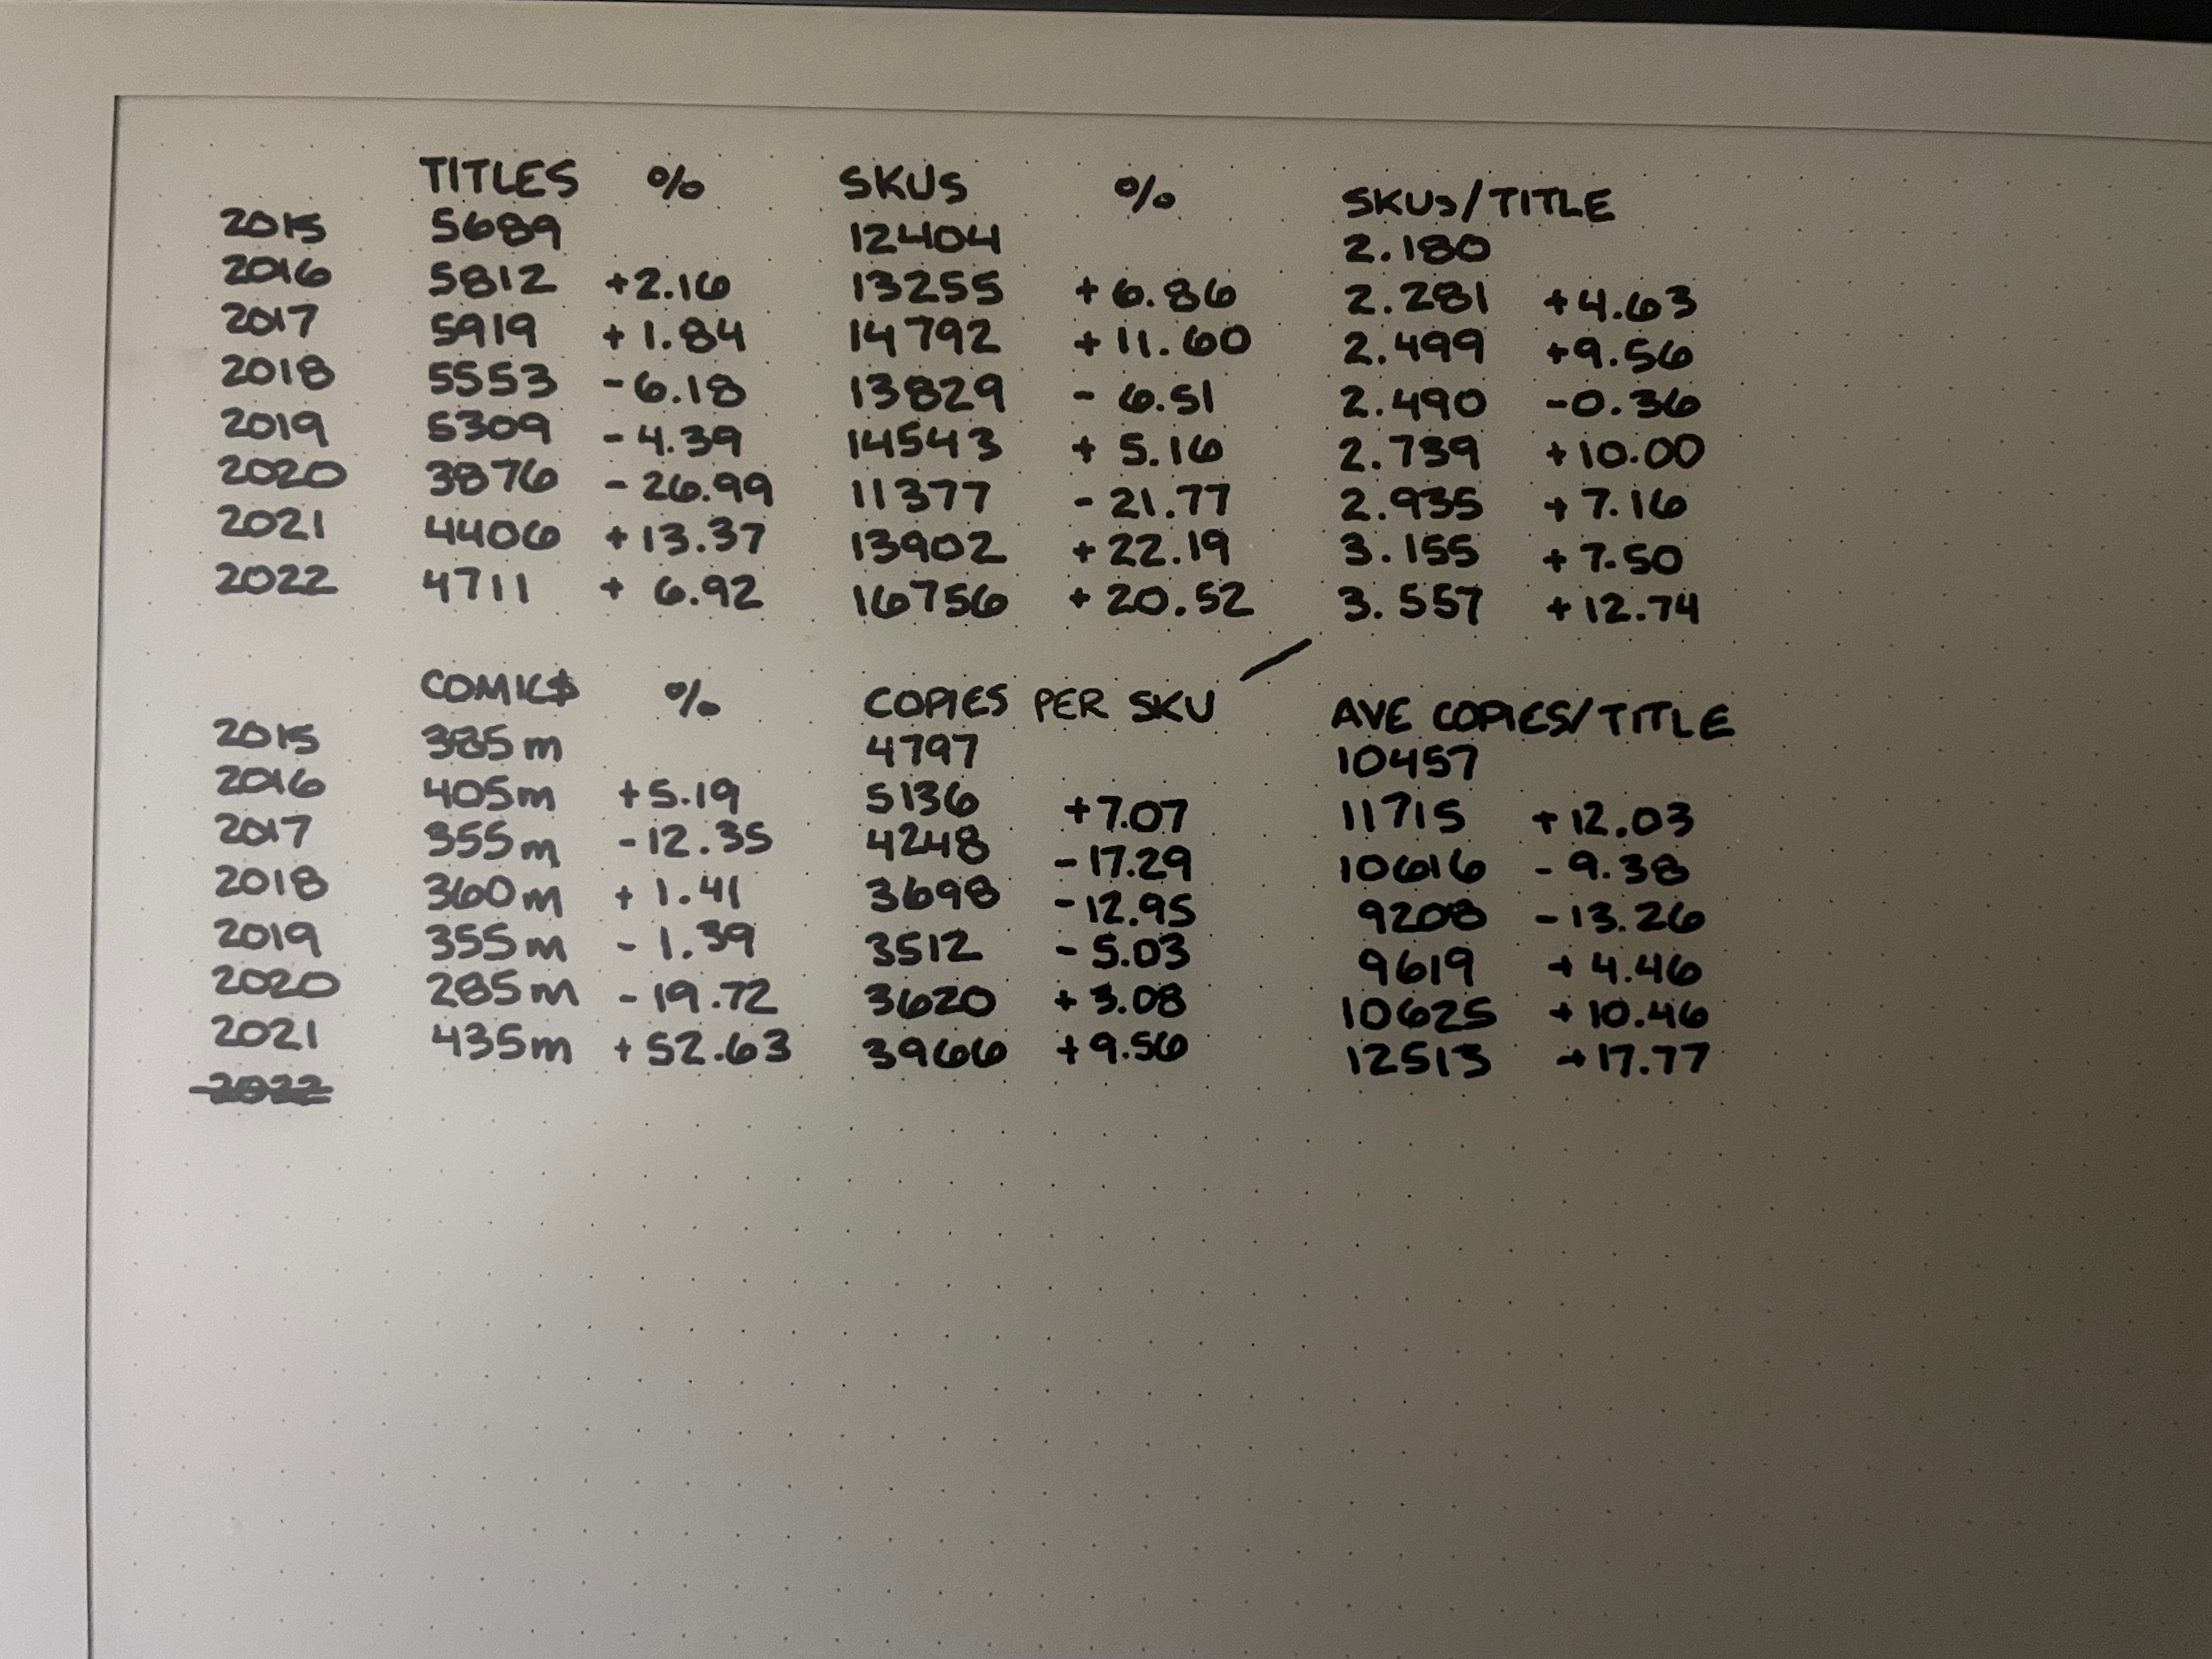 TITLES % SKUs % SKUs/TITLE
2015 5689 12404 2.180
2016 5812 +2.16 13255 +6.86 2.281 +4.63
2017 5919 +1.84 14792 +11.60 2.499 +9.56
2018 5553 -6.18 13829 -6.51 2.490 -0.36
2019 5309 -4.39 14543 +5.16 2.739 +10.00
2020 3876 -26.99 11377 -21.77 2.935 +7.16
2021 4406 +13.37 13902 +22.19 3.155 +7.50
2022 4711 +6.92 16756 +20.52 3.557 +12.74
COMIC$ % COPIES PER SKU AVE COPIES/TITLE
2015 385m 4797 10457
2016 405m +5.19 5136 +7.07 11715 +12.03
2017 355m -12.35 4248 -17.29 10616 -9.38
2018 360m +1.41 3698 -12.95 9208 -13.26
2019 355m -1.39 3512 -5.03 9619 +4.46
2020 285m -19.72 3620 +3.08 10625 +10.46
2021 435m +52.63 3966 +9.56 12513 +17.77
2022